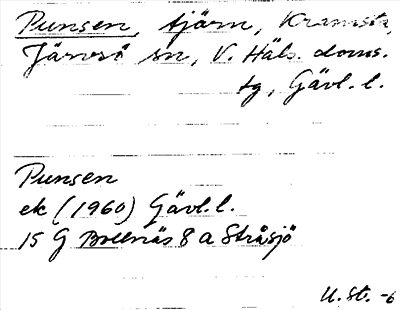 Punsen, tjärn, Kramsta,
Järvsö sn, V. Häls. doms.
tg, Gävl. l.
Punsen
ek (1960) Gävl. l.
15 G Bollnäs 8 a Stråsjö
U. St. -6